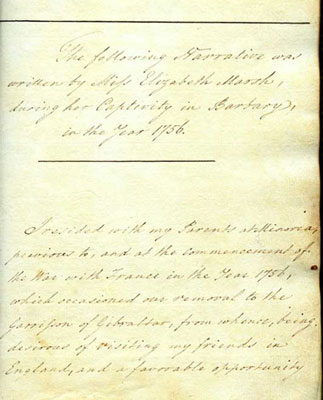 The following Narrative was
written by Miss Elizabeth Marsh,
during her Captivity in Barbary,
in the Year 1756.
I resided with my Parents at Minorca,
previous to, and at the commencement of
the War with France in the Year 1756,
which occasioned our removal to the
Garrison of Gibraltar, from whence, being
desirous of visiting my friends in
England, and a favorable opportunity